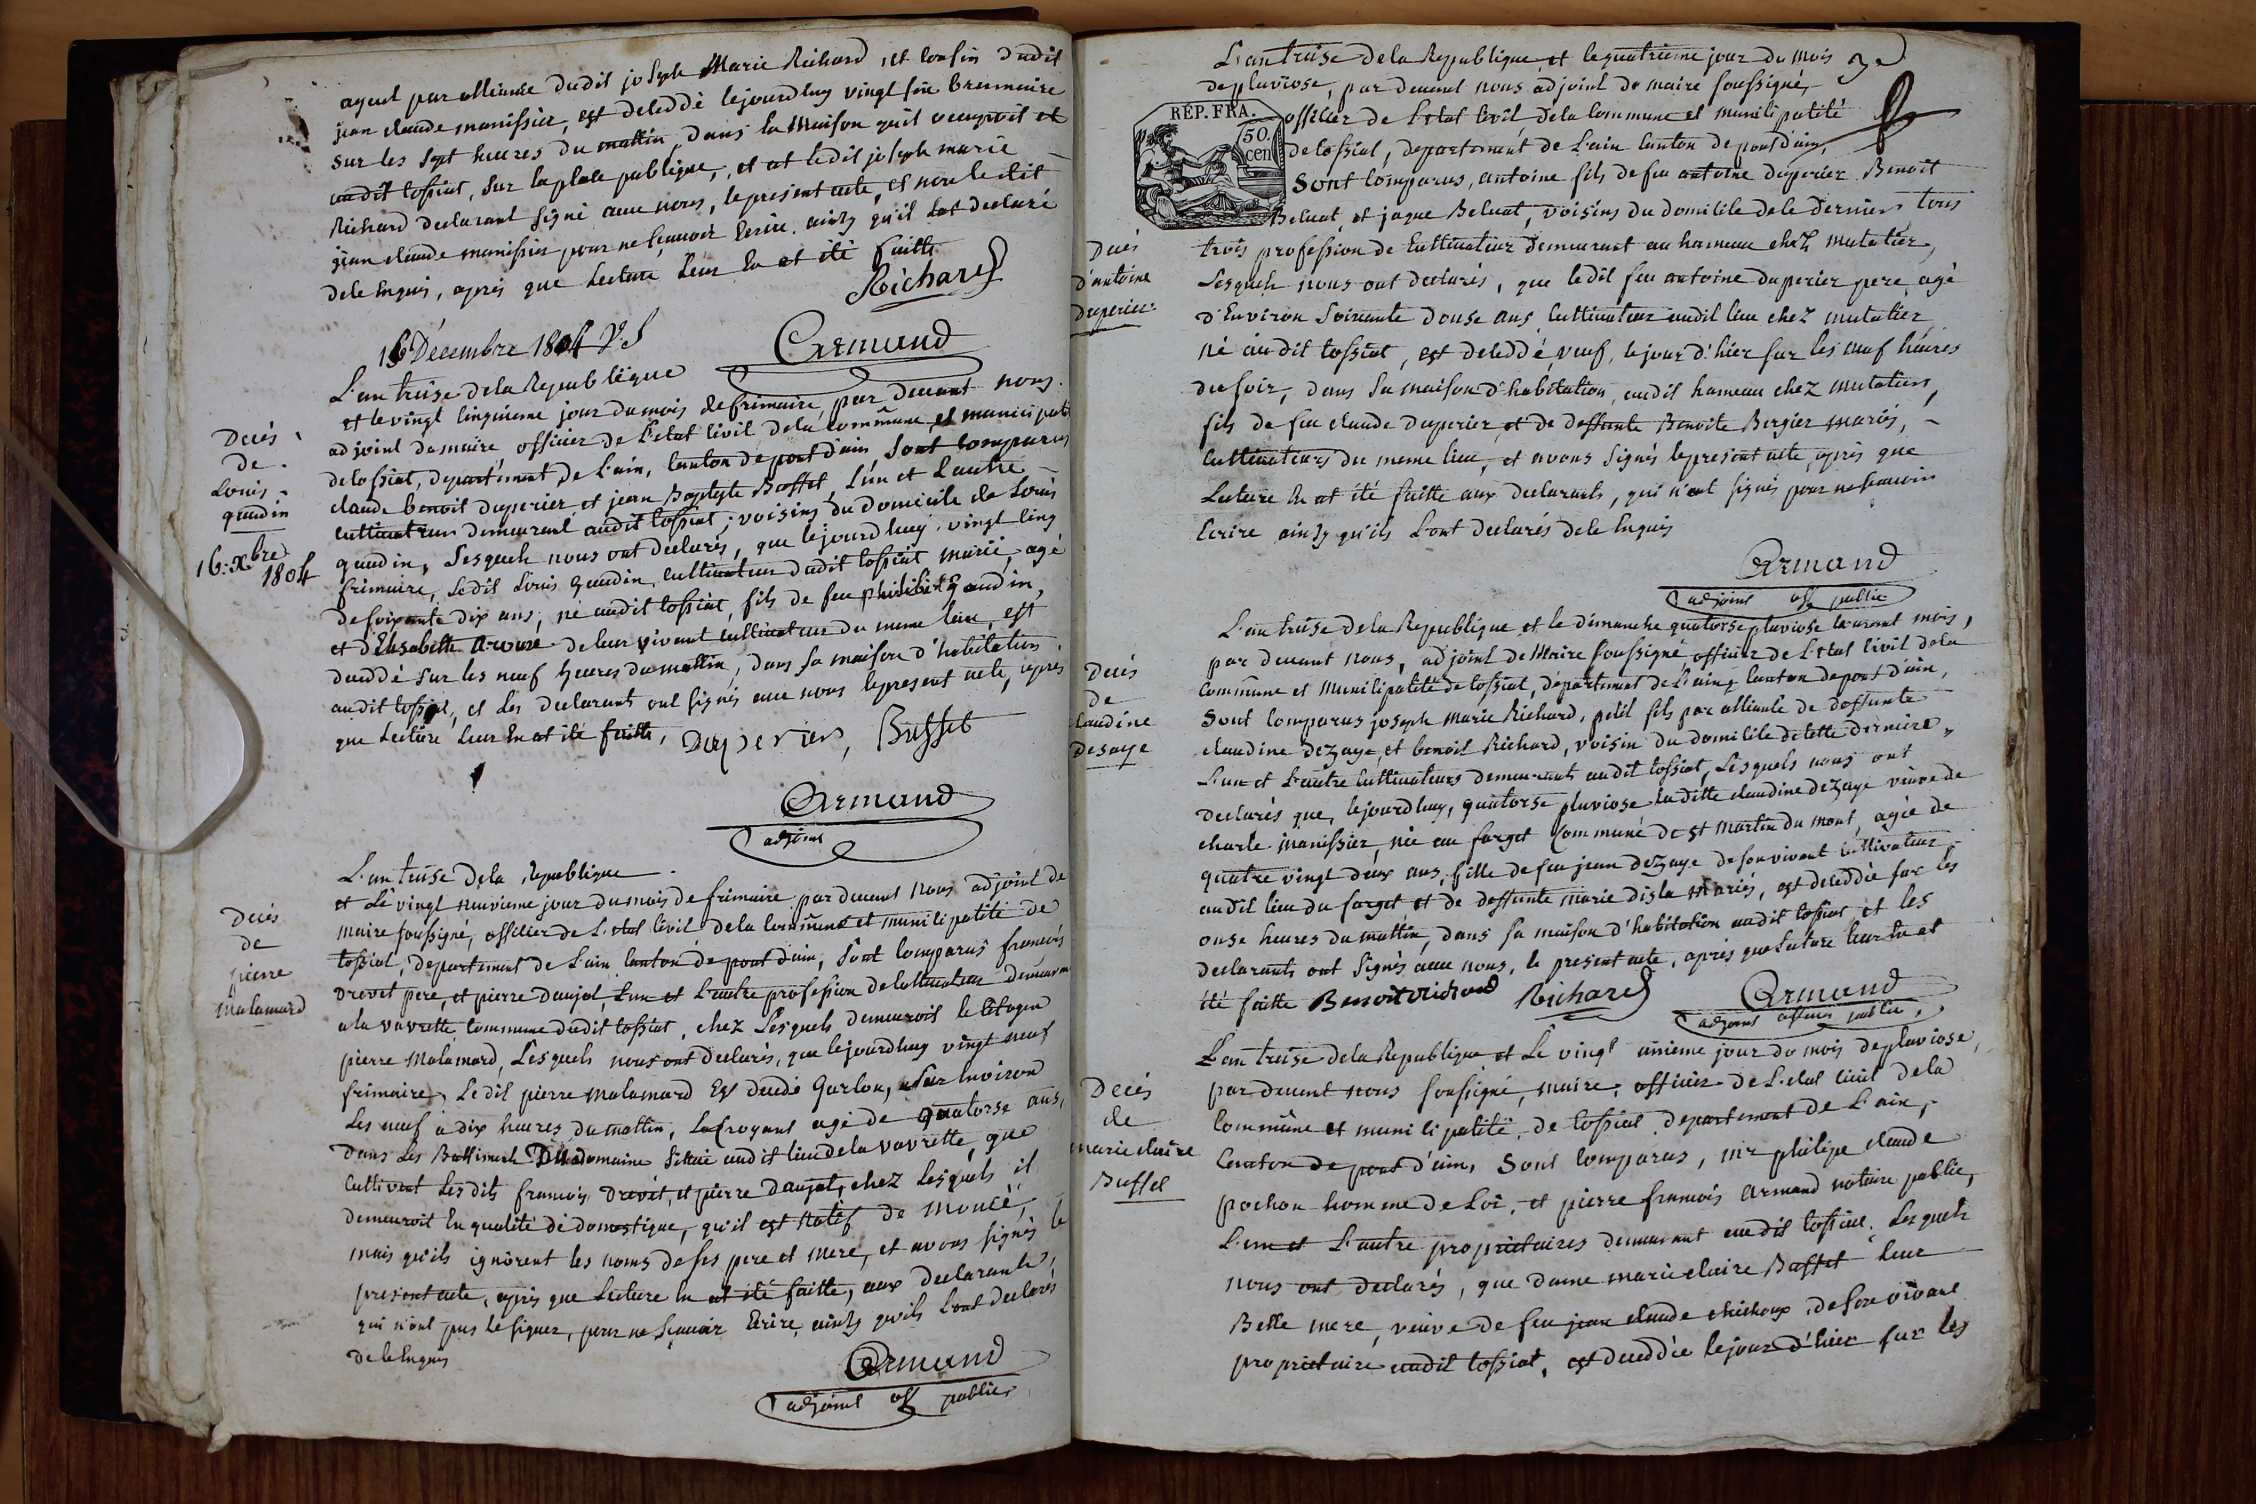 ayeul par alliance dudit joseph Marie Richard, et cousin dudit
jean claude manissier, est deceddé cejourdhuy vingt six brumaire
sur les sept heures du mattin, dans la Maison qu'il occupoit et
audit tossiat, sur la place publique, et at ledit joseph marie
Richard declarant signé avec nous, le present acte, et non le dit
jean claude manissier pour ne sçauoir Ecrire ainsy qu'il Lat declaré
dele Enquis, après que Lecture Leur En at été faitte
Richard
Armand
16 Décembre 1804 V.S
L'an treise de la Republique
et le vingt cinquieme jour du mois de frimaire, par deuant nous
adjoint du maire, officier de L'etat civil de la commune et municipalité
de tossiat, departement de L'ain, canton de pont d'ain sont comparus
claude benoit duperier et jean Baptiste Buffet, L'un et L'autre
cultivateurs demeurant audit tossiat; voisins du domicile de Louis
gaudin, Lesquels nous ont declarés, que cejourdhuy, vingt cinq
frimaire, Ledit Louis gaudin, cultivateur dudit tossiat marié, agé
de soixante dix ans, né audit tossiat, fils de feu philibert gaudin,
et d'Elisabeth de leur vivant cultivateur du meme lieu, est
deceddé sur les neuf heures du mattin, dans sa maison d'habitation
audit tossiat, et les declarants ont signés avec nous le present acte, après
que Lecture Leur En at été faitte, Duperier, Buffet
Armand
adjoint
Décés
de
Louis
gaudin
16: Xbre
1804
L'an treise de la Republique
et Le vingt neuvieme jour du mois de frimaire par deuant nous adjoint de
maire soussigné, officier de L'etat civil de la commune et municipalité de
tossiat, departement de L'ain canton de pont d'ain, sont comparus francois
Drevet pere, et pierre daujat L'un et L'autre profession de cultivateur demeurant
a la vavrette, commune dudit tossiat, chez Lesquels demeuroit le citoyen
pierre Malamard, Lesquels nous ont declarés, que cejourdhuy vingt neuf
frimaire, Ledit pierre malamard Est decedé Garçon, sur Environ
Les neuf à dix heures du mattin, Le croyant agé de quatorse ans,
dans Les Battiments Du domaine situé audit lieu de la vavrette, que
cultivent Lesdits francois Drevet, et pierre Daujat, chez Lesquels il
demeuroit En qualité de domestique, qu'il est Natif de Moncé,
mais qu'ils ignorent les noms de ses pere et mere, et avons signés le
present acte, après que Lecture En at été faitte, aux declarants
qui n'ont pas Le signer, pour ne sçauoir Ecrire, ainsy qu'ils Lont declarés
de le Enquis
Armand
adjoint off public
Décés
de
pierre
Malamard
L'an treise de la Republique et le quatrieme jour du mois
de pluviose, par deuant nous adjoint de maire soussigné,
officier de L'etat civil de la commune et municipalité
de tossiat, departement de L'ain canton de pont d'ain,
Sont comparus, antoine fils de feu antoine duperier Benoit
Beluat, et jaque Beluat, voisins du domicile de le dernier tous
trois profession de Cultivateur demeurant au hameau chez mutatier,
Lesquels nous ont declarés, que ledit feu antoine duperier pere, agé
d'Environ Soixante douse ans Cultivateur audit lieu chez mutatier
né audit tossiat, est deceddé veuf, le jour d'hier sur les neuf heures
du soir, dans sa maison d'habitation, audit hameau chez mutatier,
fils de feu claude duperier, et de deffunte Benoite Bergier mariés,
cultivateurs du meme lieu, et avons signés le present acte, après que
Lecture En at été faitte aux declarants, qui n'ont signés pour ne sçauoir
Ecrire ainsy qu'ils L'ont declarés de le Enquis
Armand
adjoint off public
RÉP. FRA.
50
cen
Décés
d'antoine
duperier
L'an treise de la Republique et le dimanche quatorse pluviose courant mois,
par deuant nous, adjoint de Maire soussigné officier de L'etat civil de la
Commune et Municipalité de tossiat, département de L'ain, canton de pont d'ain,
Sont comparus joseph Marie Richard, petit fils par alliance de deffunte
claudine dezaye, et benoit Richard, voisin du domicile de cette derniere,
L'un et L'autre Cultivateurs demeurants audit tossiat, Lesquels nous ont
declarés que, cejourdhuy, quatorse pluviose laditte claudine dezaye veuve de
charle manissier, née au farget Commune de St Martin du mont, agée de
quatre vingt deux ans, fille de feu jean dezaye de son vivant cultivateur
audit lieu du farget et de deffunte marie mariés, est deceddée sur les
onse heures du mattin, dans sa maison d'habitation audit tossiat et les
declarants ont signés avec nous, le present acte, après que Lecture leur En at
été faitte Benoit Richard Richard Armand
adjoint officier public
Décés
de
claudine
desaye
L'an treise de la Republique et Le vingt unieme jour du mois de pluviose,
par deuant nous soussigné, maire, officier de L'etat civil de la
Commune et municipalité, de tossiat departement de L'ain,
Canton de pont d'ain, Sont comparus, mr philipe claude
pochon homme de Loi, et pierre francois Armand notaire public,
L'un et L'autre propriétaires demeurant audit tossiat, Lesquels
nous ont declarés, que dame marie claire Buffet leur
Belle mere, veuve de feu jean claude chichoux, de son vivant
propriétaire audit tossiat, est deceddée le jour d'hier sur les
Décés
de
marie claire
Buffet